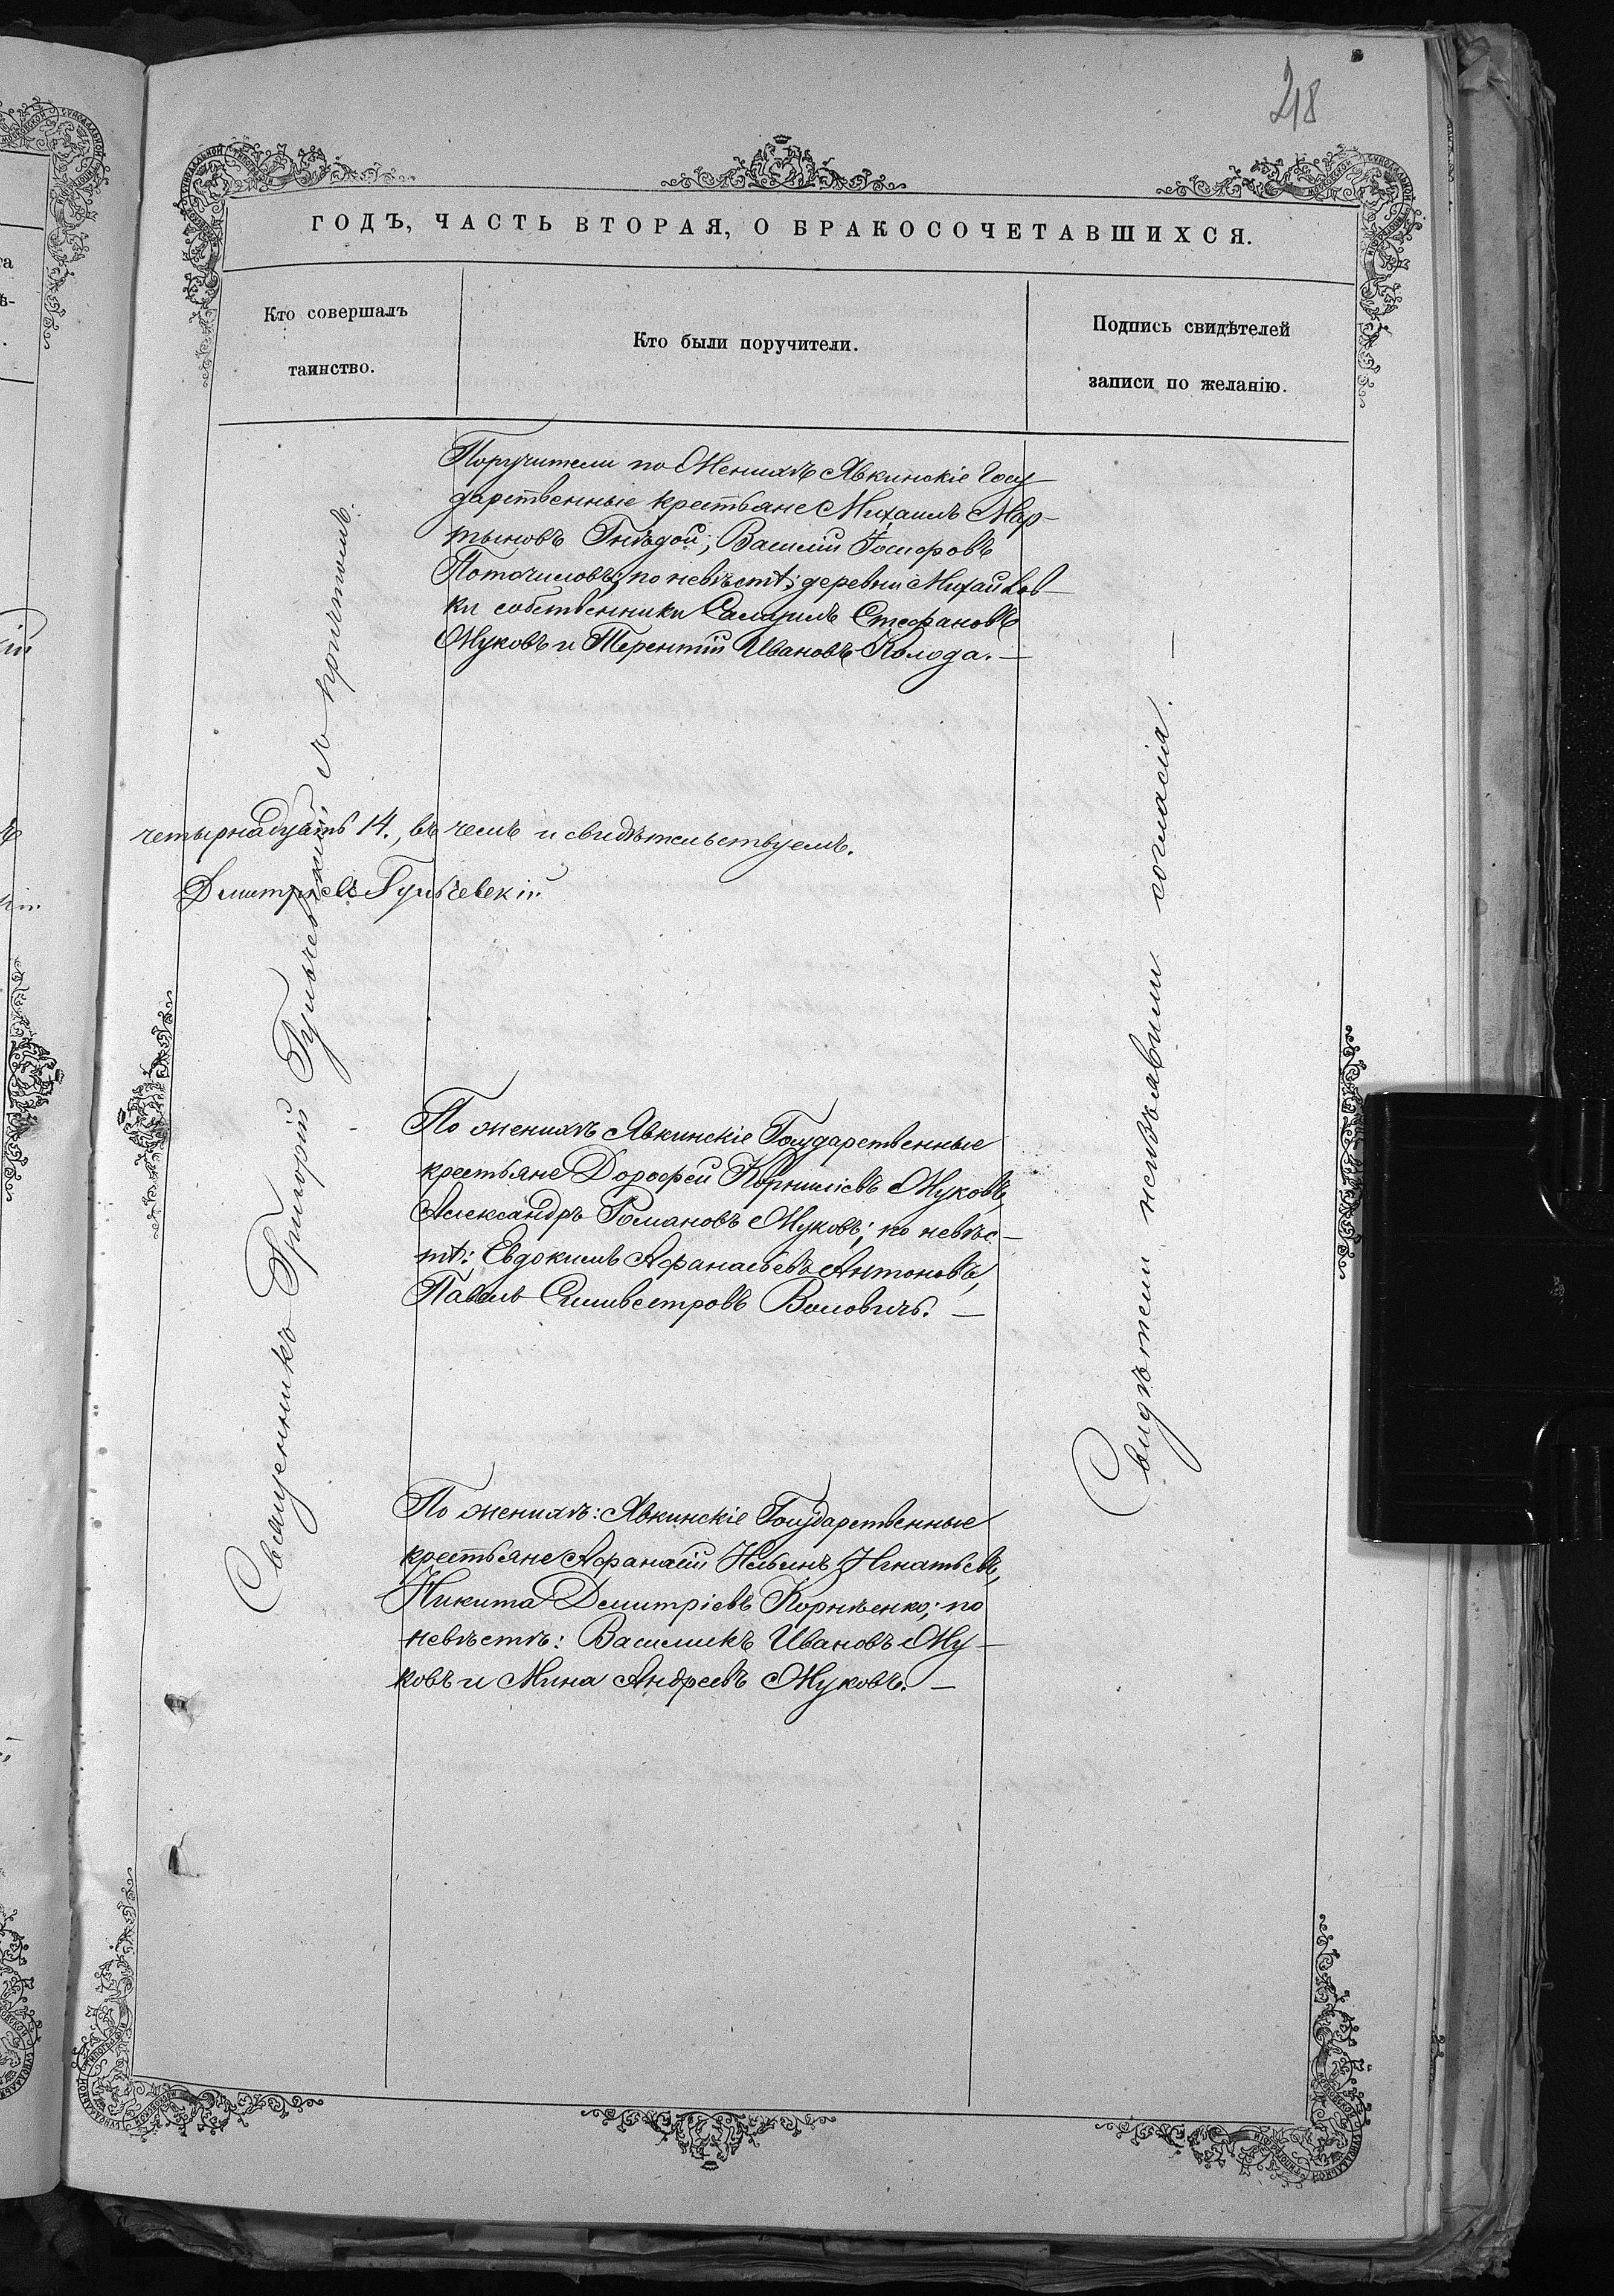 218
ГОДЪ, ЧАСТЬ ВТОРАЯ, О БРАКОСОЧЕТАВШИХСЯ.
Кто совершалъ
таинство.
Кто были поручители.
Подпись свидѣтелей
записи по желанію.
Священникъ Григорій Гульчевскій, съ причтомъ.
Поручители по Женихѣ Явкинскіе Госу-
дарственные крестьяне Михаилъ Мар-
тыновъ Гнѣдой, Василій Іосифовъ
по невѣстѣ: деревни Михайлов-
ки собственники Стефановъ
Жуковъ и Терентій Ивановъ Колода. —
четырнадцать 14., въ чемъ и свидѣтельствуемъ.
Гульчевскій
По женихѣ Явкинскіе Государственные
крестьяне Дорофей Корниліевъ Жуковъ,
Александръ Романовъ Жуковъ; по невѣс-
тѣ: Евдокимъ Афанасьевъ Антоновъ,
Павелъ Силивестровъ Воловичъ. —
По женихѣ: Явкинскіе Государственные
крестьяне Афанасій Игнатьевъ,
Никита Димитріевъ Корнѣенко; по
невѣстѣ: Ивановъ Жу-
ковъ и Мина Андреевъ Жуковъ. —
Свидѣтели неизъявили согласія. —
СУНОДАЛЬНОЙ
ТИПОГРАФІИ
МОСКОВСКОЙ